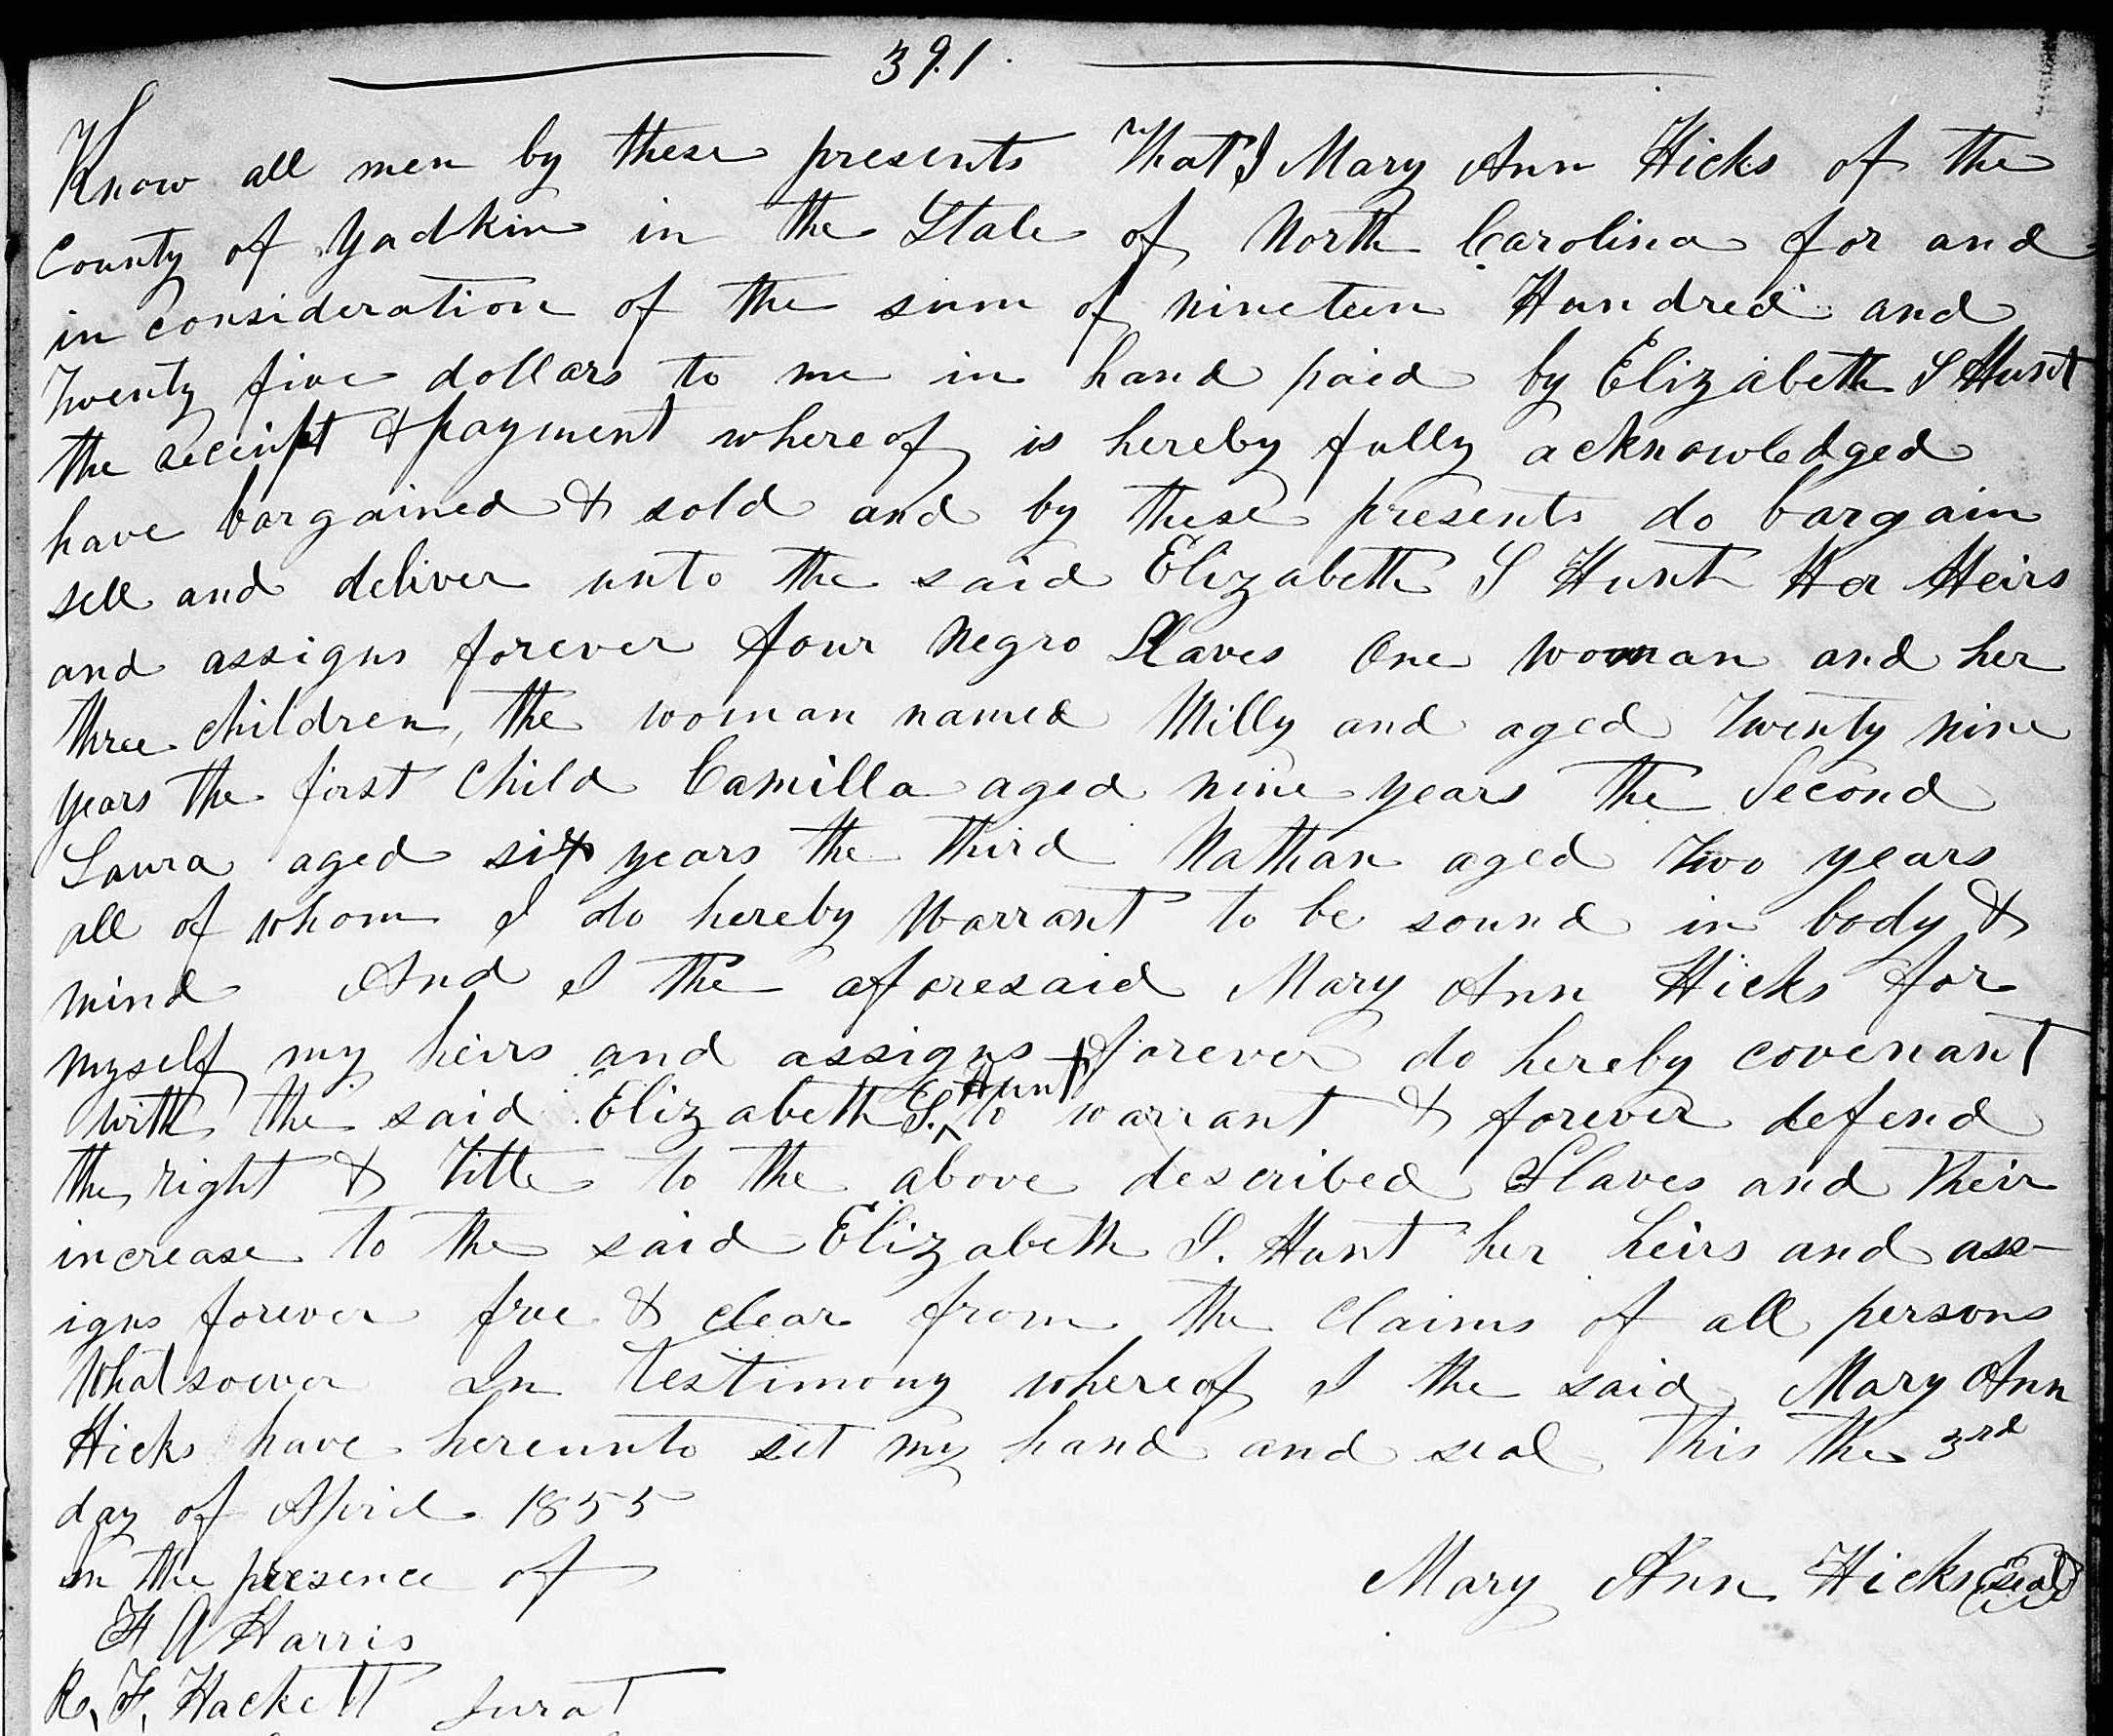 391.
Know all men by these presents That I Mary Ann Hicks of the
County of Yadkin in the State of North Carolina for and
in consideration of the sum of nineteen Hundred and
Twenty five dollars to me in hand paid by Elizabeth S Hunt
the receipt & payment whereof is hereby fully acknowledged
have bargained & sold and by these presents do bargain
sell and deliver unto the said Elizabeth S Hunt Her Heirs
and assigns forever four Negro Slaves One woman and her
three children, the woman named Milly and aged Twenty nine
years the first Child Camilla aged nine years the Second
Laura aged six years the third Nathan aged Two years
all of whom I do hereby Warrant to be sound in body &
mind And I the aforesaid Mary Ann Hicks for
myself my heirs and assigns forever do hereby covenant
with the said Elizabeth S. Hunt to warrant & forever defend
the right & Title to the above described Slaves and their
increase to the said Elizabeth S. Hunt her heirs and ass-
igns forever free & clear from the Claims of all persons
Whatsoever In Testimony whereof I the said Mary Ann
Hicks have hereunto set my hand and seal This the 3rd
day of April 1855
In the presence of
Mary Ann Hicks (Seal)
A Harris
R. F. Hackett Jurat